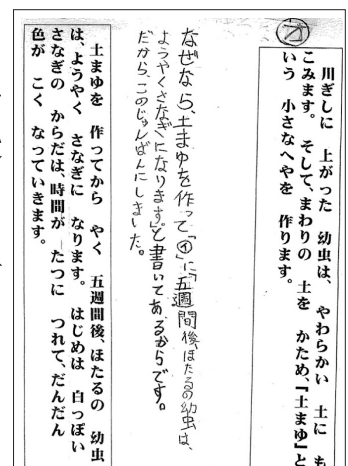 ㋔
川ぎしに 上がった 幼虫は、やわらかい 土に も
こみます。そして、まわりの 土を かため、「土まゆ」と
いう 小さなへやを 作ります。
なぜなら、土まゆを作って「㋑」に「五週間後、ほたるの幼虫は、
ようやくさなぎになります。」と書いてあるからです。
だから、このじゅんばんにしました。
土まゆを 作ってから やく 五週間後、ほたるの 幼虫
は、ようやく さなぎに なります。はじめは 白っぽい
さなぎの からだは、時間が たつに つれて、だんだん
色が こく なっていきます。